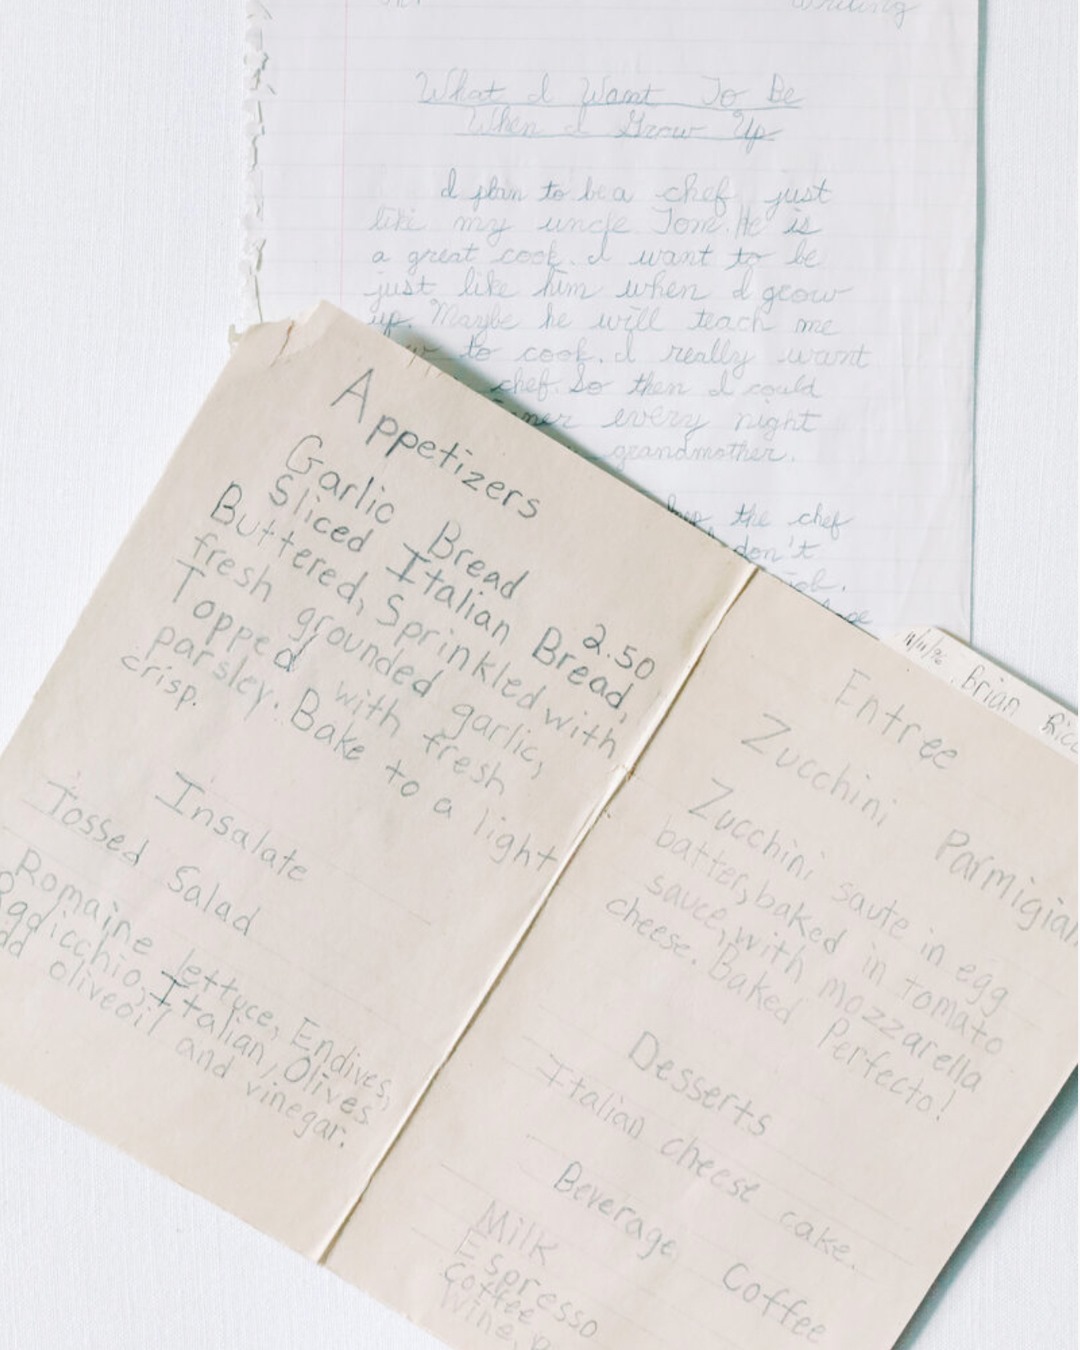 Writing
What I Want To Be
When I Grow Up
I plan to be a chef just
like my uncle Tom. He is
a great cook. I want to be
just like him when I grow
up. Maybe he will teach me
to cook. I really want
chef. So then I could
every night
grandmother.
the chef
don't
job.
Appetizers
Garlic Bread 2.50
Sliced Italian Bread,
Buttered, Sprinkled with
fresh grounded garlic,
Topped with fresh
parsley. Bake to a light
crisp.
Insalate
Tossed Salad
Romaine lettuce, Endives,
Radicchio, Italian Olives
oliveoil and vinegar.
Brian
Entree
Zucchini Parmigian
Zucchini saute in egg
batter, baked in tomato
sauce, with mozzarella
cheese. Baked Perfecto!
Desserts
Italian cheese cake.
Beverage Coffee
Milk
Espresso
Coffee
Wine,